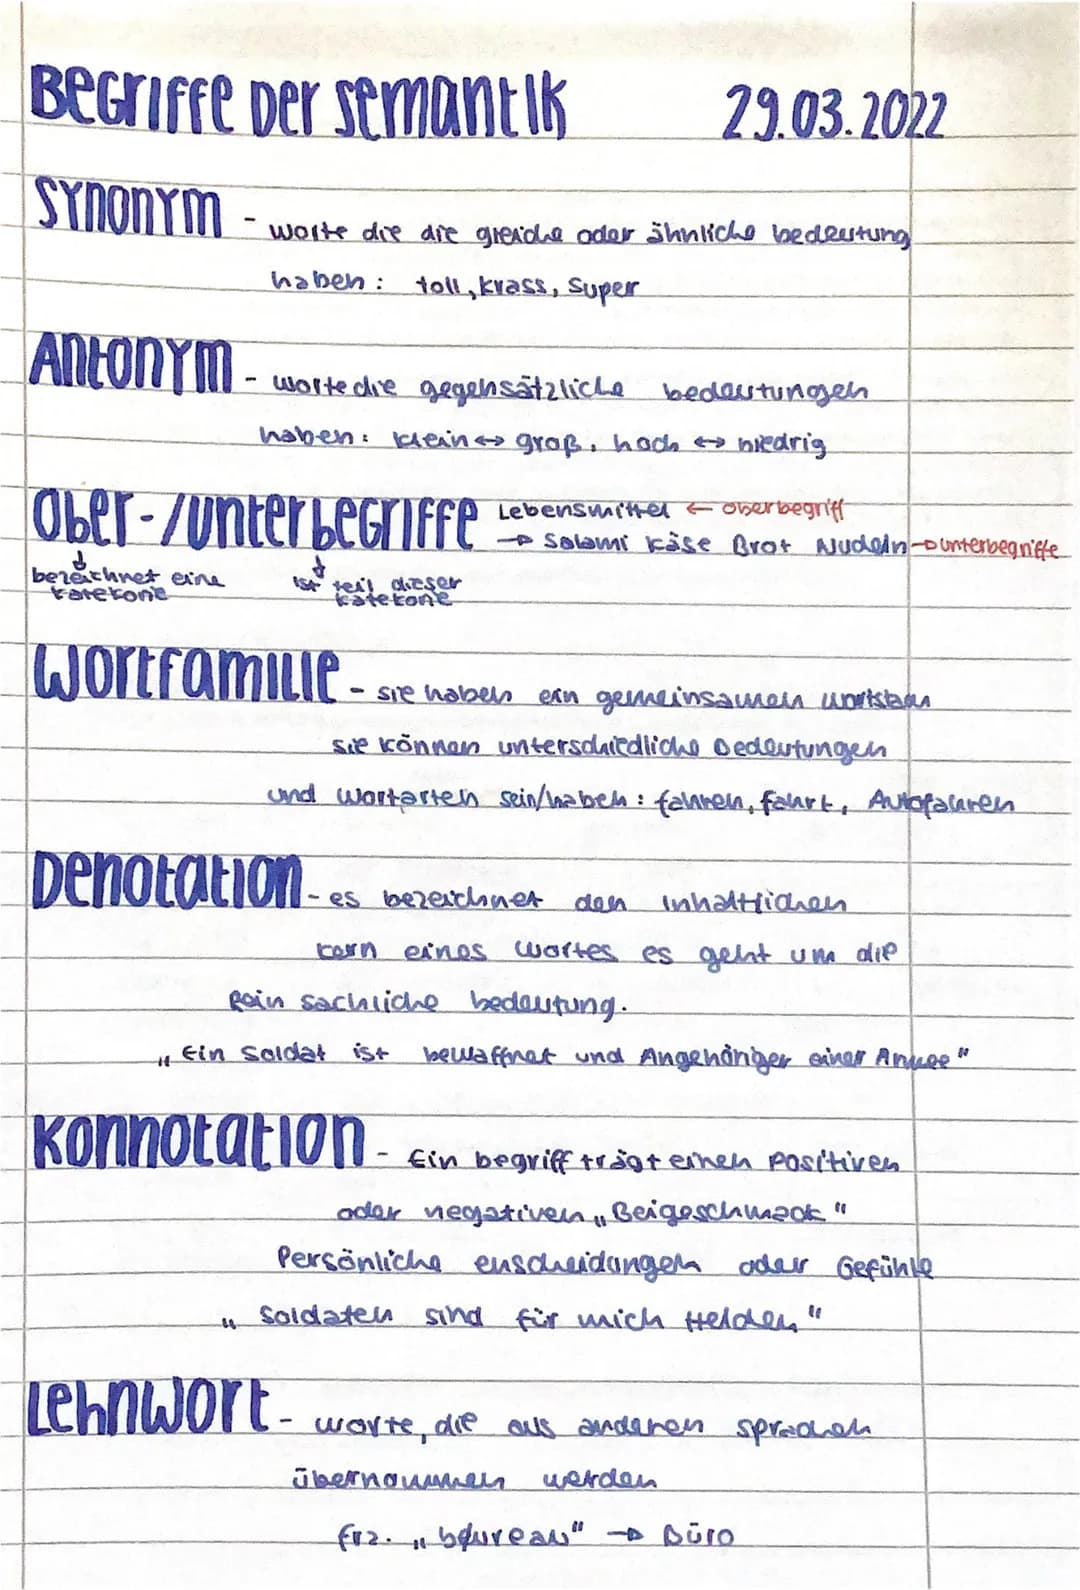 Begriffe der Semantik 29.03.2022
Synonym - worte die die gleiche oder ähnliche bedeutung
haben: toll, krass, Super
Antonym - worte die gegensätzliche bedeutungen
haben: klein ↔ groß, hoch ↔ niedrig
Ober-/unterbegriffe Lebensmittel ← oberbegriff
→ Salami Käse Brot Nudeln → unterbegriffe
bezeichnet eine ist teil dieser
katekorie katekorie
Wortfamilie - sie haben ein gemeinsamen wortstam
sie können unterschiedliche Bedeutungen
und wortarten sein/haben: fahren, fahrt, Autofahren
Denotation - es bezeichnet den inhaltlichen
kern eines wortes es geht um die
Rein sachliche bedeutung.
„Ein Soldat ist bewaffnet und Angehöriger einer Armee"
Konnotation - Ein begriff trägt einen positiven
oder negativen „Beigeschmack"
Persönliche enscheidungen oder Gefühle
„Soldaten sind für mich Helden"
Lehnwort - worte, die aus anderen sprachen
übernommen werden
frz. „bureau" → Büro